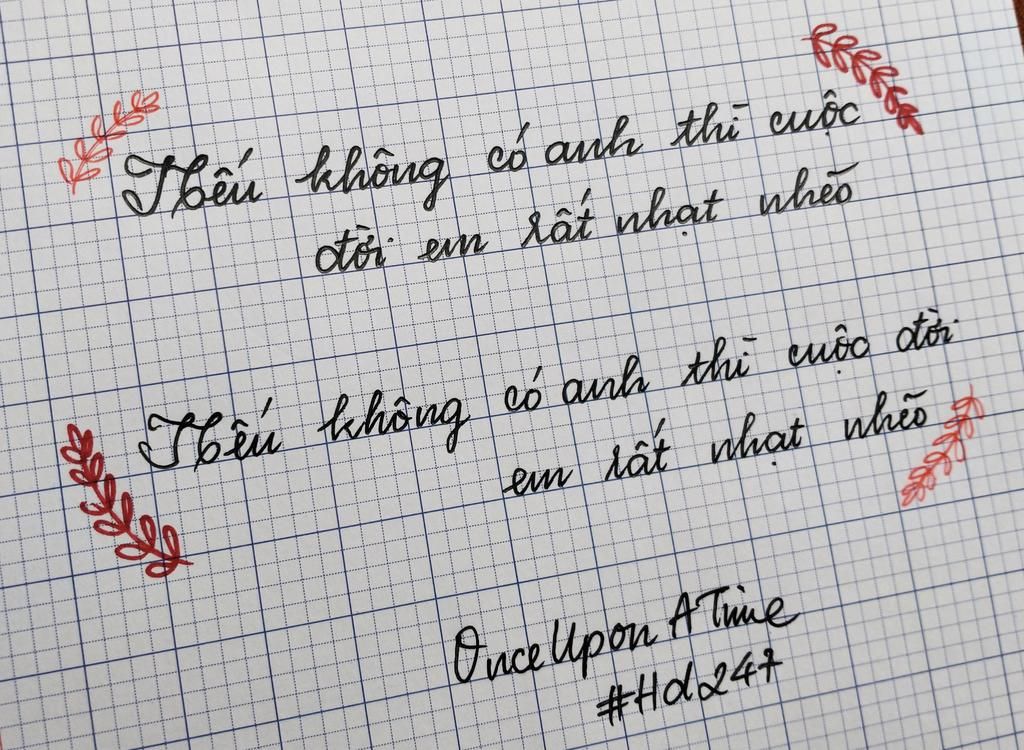 Nếu không có anh thì cuộc
đời em rất nhạt nhẽo
Nếu không có anh thì cuộc đời
em rất nhạt nhẽo
Once Upon A Time
#Hd247